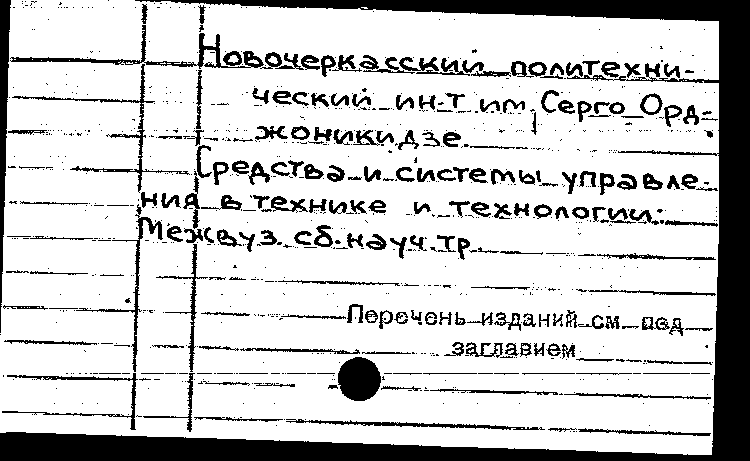 Новочеркасский политехни-
ческий ин-т им. Серго Орд-
жоникидзе.
Средства и системы управле-
ния в технике и технологии:
Межвуз. сб. науч. тр.
Перечень изданий см. под
заглавием